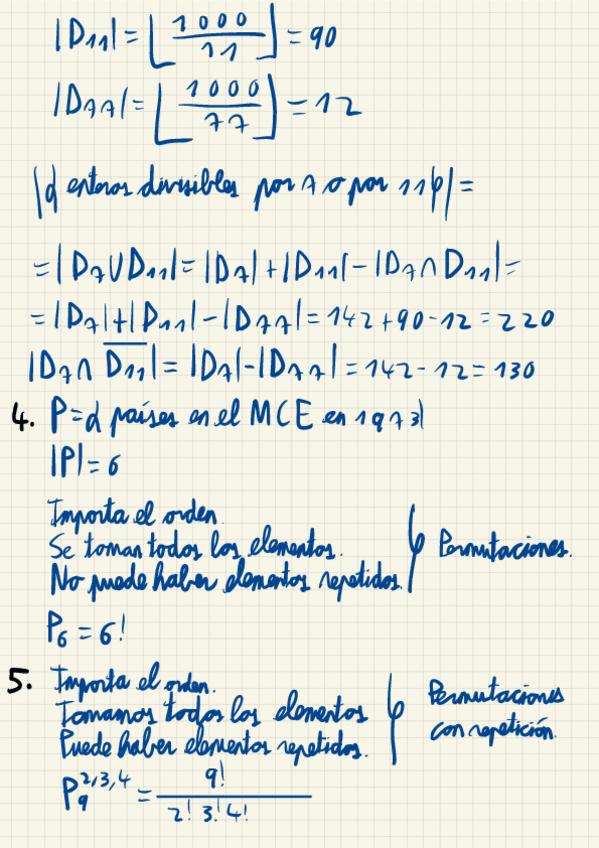 |D₁₁| = ⌊1000/11⌋ = 90
|D₇₇| = ⌊1000/77⌋ = 12
|{enteros divisibles por 7 o por 11}| =
= |D₇ ∪ D₁₁| = |D₇| + |D₁₁| - |D₇ ∩ D₁₁| =
= |D₇| + |D₁₁| - |D₇₇| = 142 + 90 - 12 = 220
|D₇ ∩ D̅₁₁| = |D₇| - |D₇₇| = 142 - 12 = 130
4. P = {países en el MCE en 1973}
|P| = 6
Importa el orden.
Se toman todos los elementos.
No puede haber elementos repetidos.
} Permutaciones.
P₆ = 6!
5. Importa el orden.
Tomamos todos los elementos
Puede haber elementos repetidos.
} Permutaciones
con repetición.
P₉^2,3,4 = 9! / 2! 3! 4!